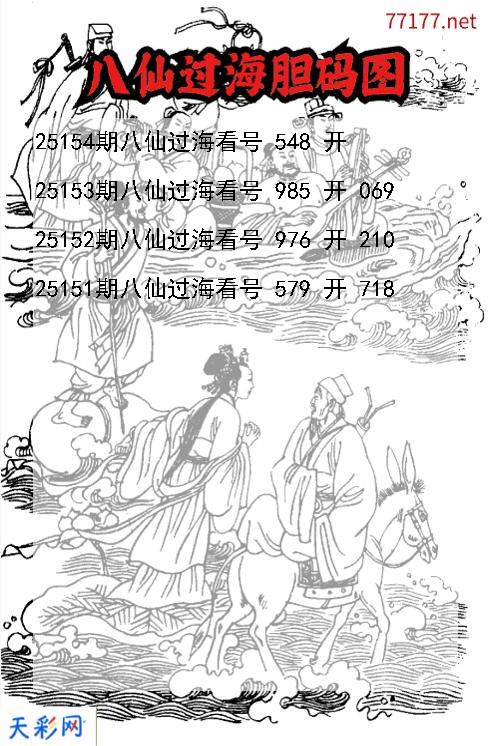 77177.net
八仙过海胆码图
25154期八仙过海看号 548 开
25153期八仙过海看号 985 开 069
25152期八仙过海看号 976 开 210
25151期八仙过海看号 579 开 718
天彩网